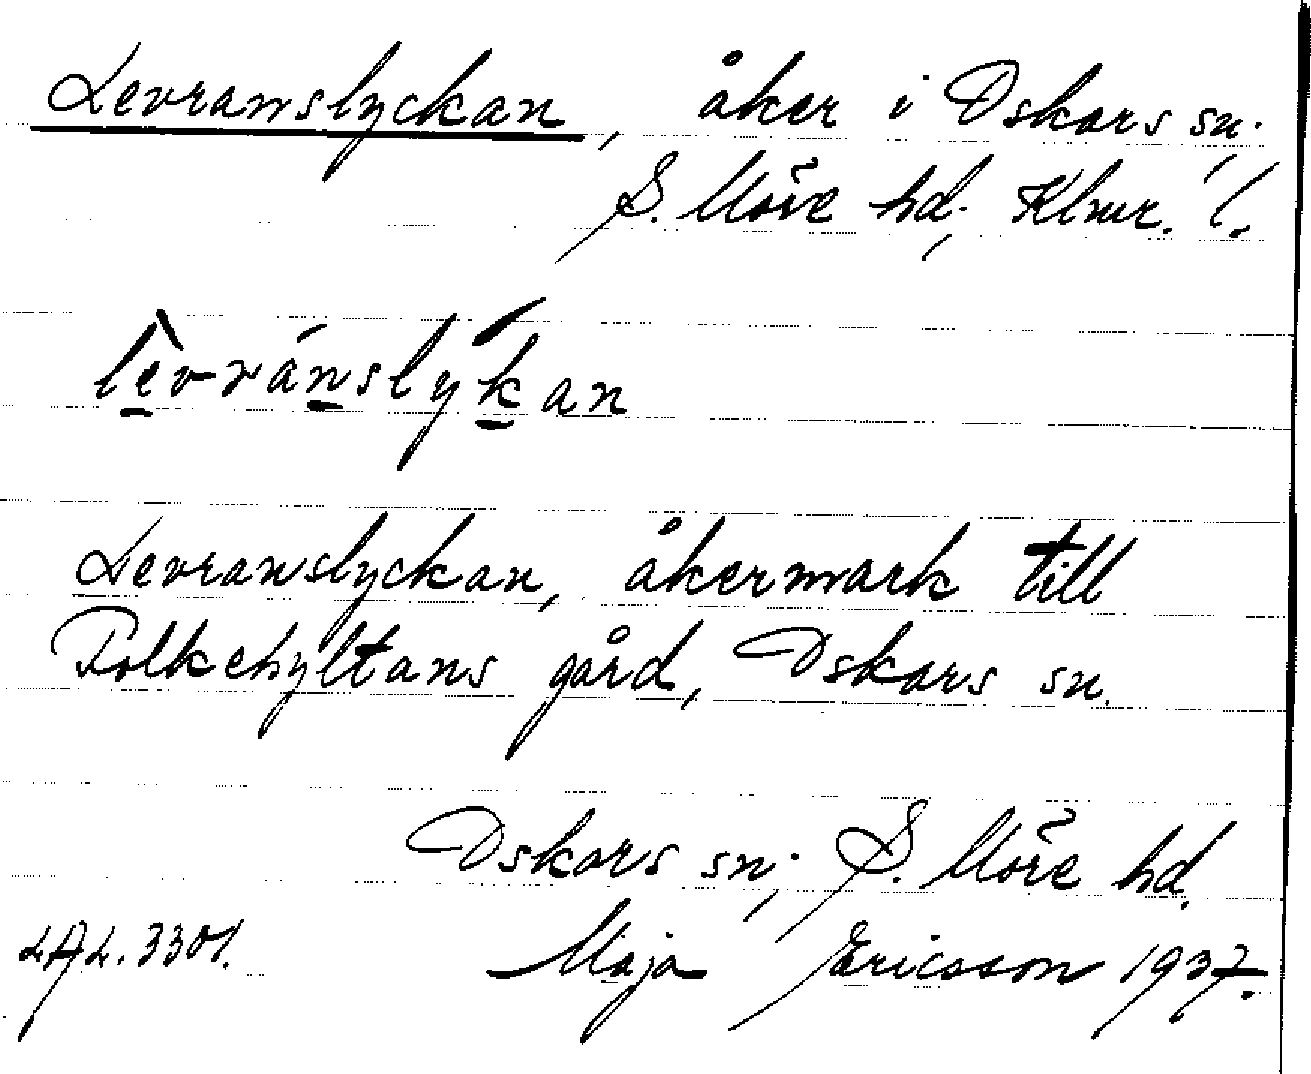 Levranslyckan, åker i Oskars sn.,
S. Möre hd., Klmr. l.
lèvránslýkan
Levranslyckan, åkermark till
Folkehyltans gård, Oskars sn.
Oskars sn., S. Möre hd.
LAL. 3301. Maja Ericsson 1937.